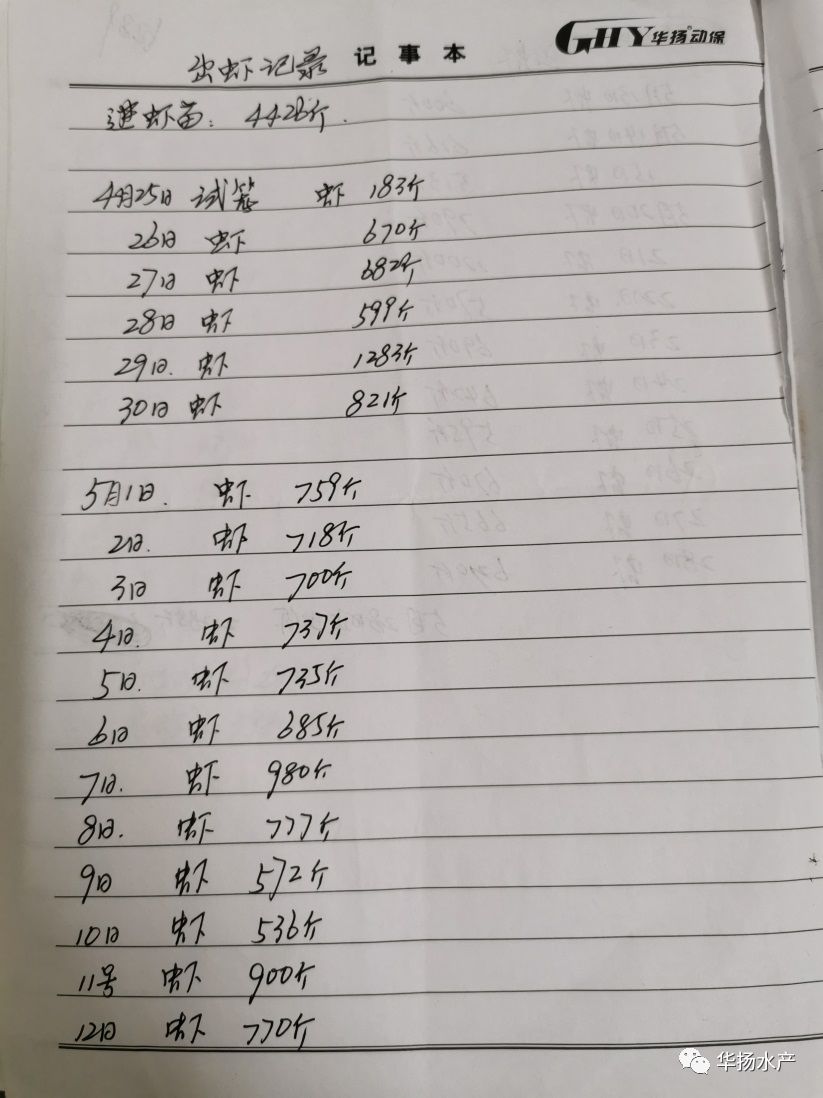 出虾记录 记事本 GHY华扬动保
进虾苗: 4426斤.
4月25日 试笼 虾 183斤
26日 虾 670斤
27日 虾 682斤
28日 虾 599斤
29日. 虾 1283斤
30日 虾 821斤
5月1日. 虾 759斤
2日. 虾 718斤
3日 虾 700斤
4日. 虾 737斤
5日. 虾 735斤
6日 虾 685斤
7日. 虾 980斤
8日. 虾 777斤
9日 虾 572斤
10日 虾 536斤
11号 虾 900斤
12日 虾 770斤
华扬水产